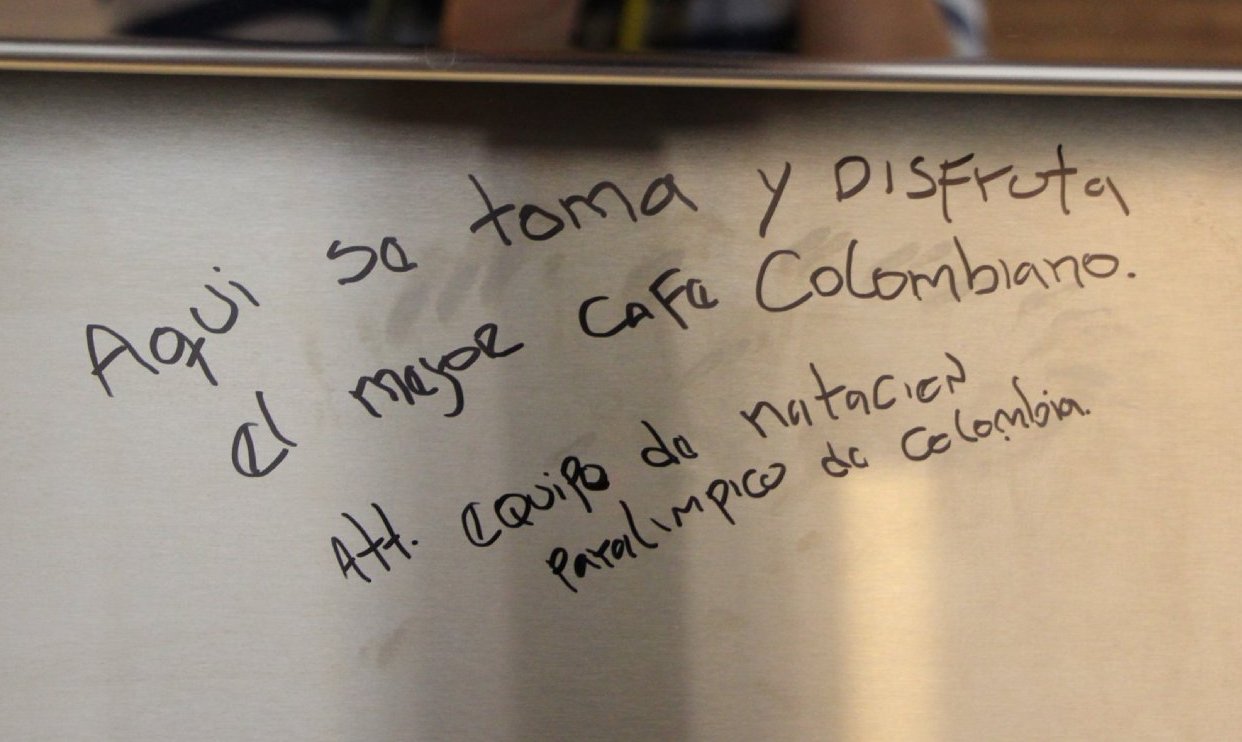 Aqui se toma y DISFruta
el mejor cafe Colombiano.
Att. equipo de natacion
paralimpico de colombia.